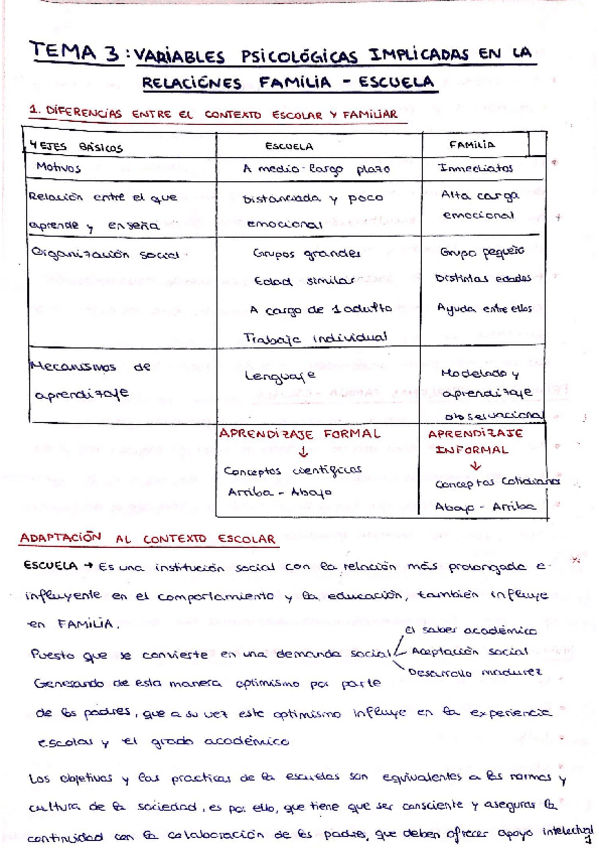 TEMA 3: VARIABLES PSICOLÓGICAS IMPLICADAS EN LA
RELACIONES FAMILIA - ESCUELA
1. DIFERENCIAS ENTRE EL CONTEXTO ESCOLAR Y FAMILIAR
4 EJES BÁSICOS ESCUELA FAMILIA
Motivos A medio-largo plazo Inmediatos
Relación entre el que Distanciada y poco Alta carga
aprende y enseña emocional emocional
Organización social. Grupos grandes Grupo pequeño
Edad similar Distintas edades
A cargo de 1 adulto Ayuda entre ellos
Trabajo individual
Mecanismos de Lenguaje Modelado y
aprendizaje aprendizaje
observacional
APRENDIZAJE FORMAL APRENDIZAJE
↓ INFORMAL
Conceptos científicos ↓
Arriba - Abajo Conceptos Cotidianos
Abajo - Arriba
ADAPTACIÓN AL CONTEXTO ESCOLAR
ESCUELA → Es una institución social con la relación más prolongada e
influyente en el comportamiento y la educación, también influye
en FAMILIA.
El saber académico
Puesto que se convierte en una demanda social Aceptación social
Desarrollo madurez
Generando de esta manera optimismo por parte
de los padres, que a su vez este optimismo influye en la experiencia
escolar y el grado académico
Los objetivos y las practicas de la escuelas son equivalentes a las normas y
cultura de la sociedad, es por ello, que tiene que ser consciente y asegurar la
continuidad con la colaboración de los padres, que deben ofrecer apoyo intelectual
1